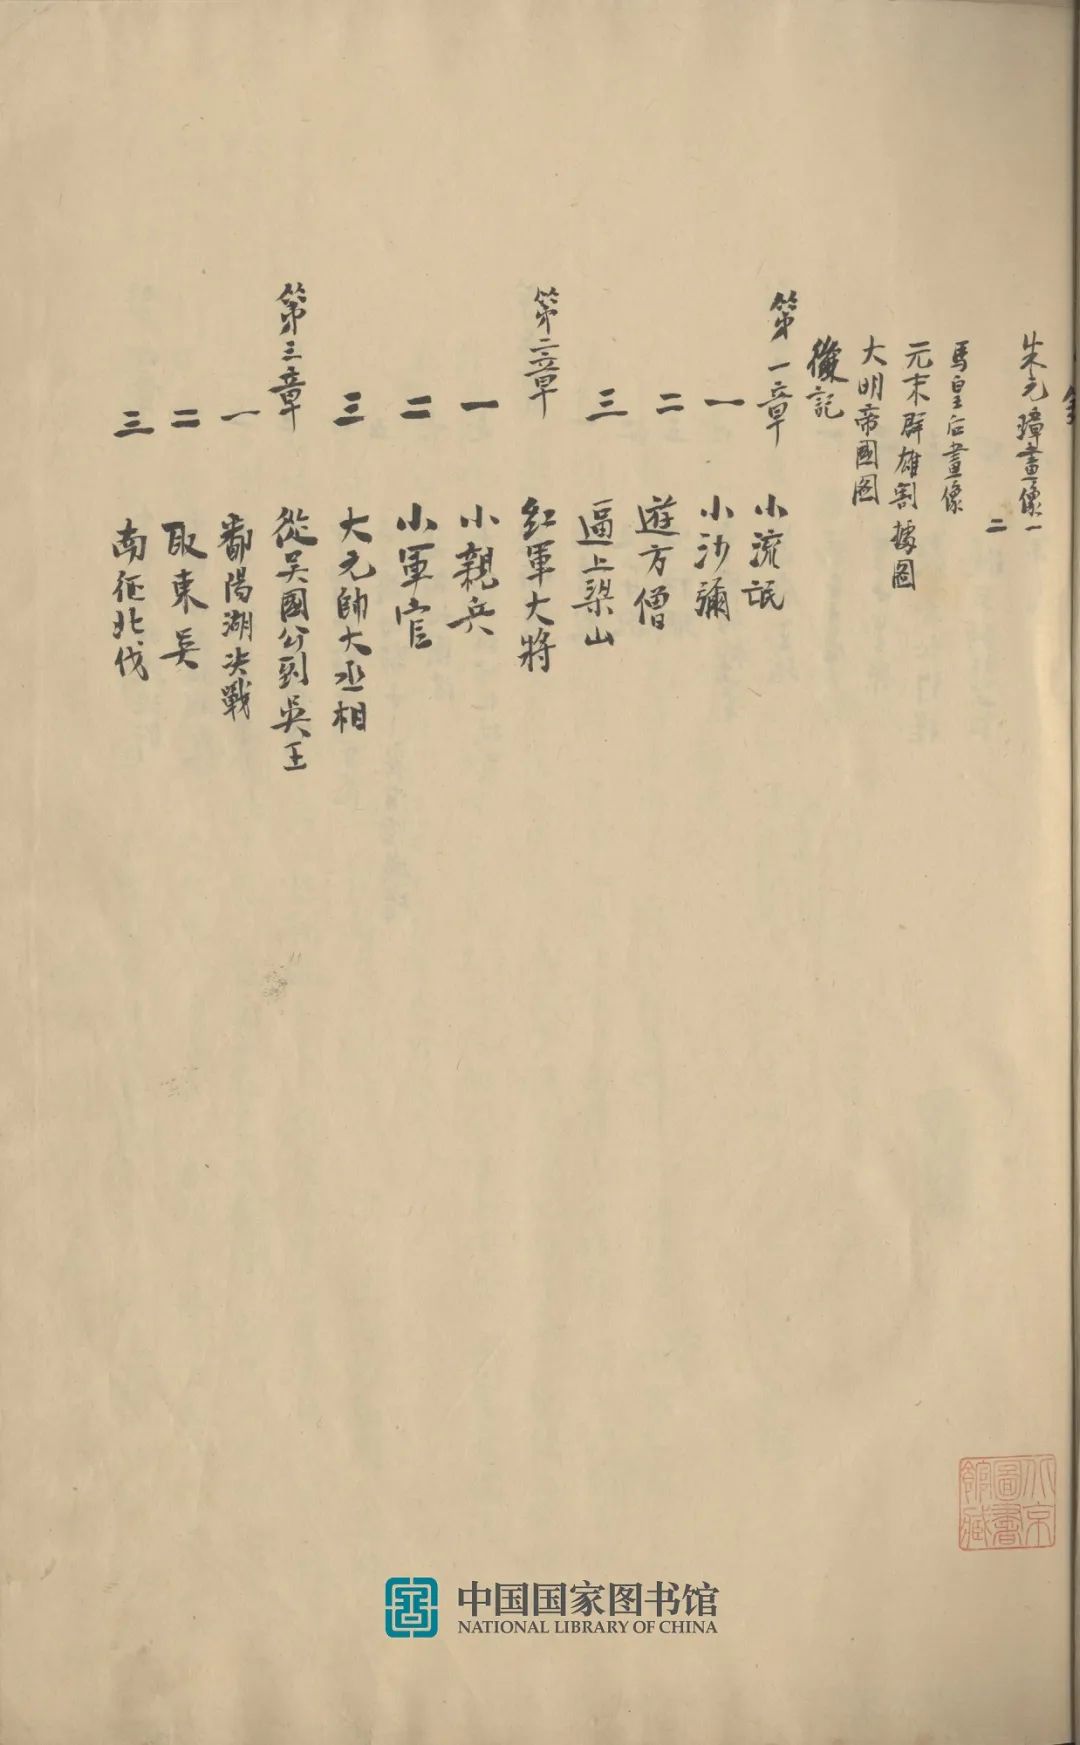 朱元璋畫像一
二
馬皇后畫像
元末群雄割據圖
大明帝國圖
後記
第一章 小流氓
一 小沙彌
二 遊方僧
三 逼上梁山
第二章 紅軍大將
一 小親兵
二 小軍官
三 大元帥大丞相
第三章 從吳國公到吳王
一 鄱陽湖决戰
二 取東吳
三 南征北伐
北京圖書館藏
中国国家图书馆
NATIONAL LIBRARY OF CHINA